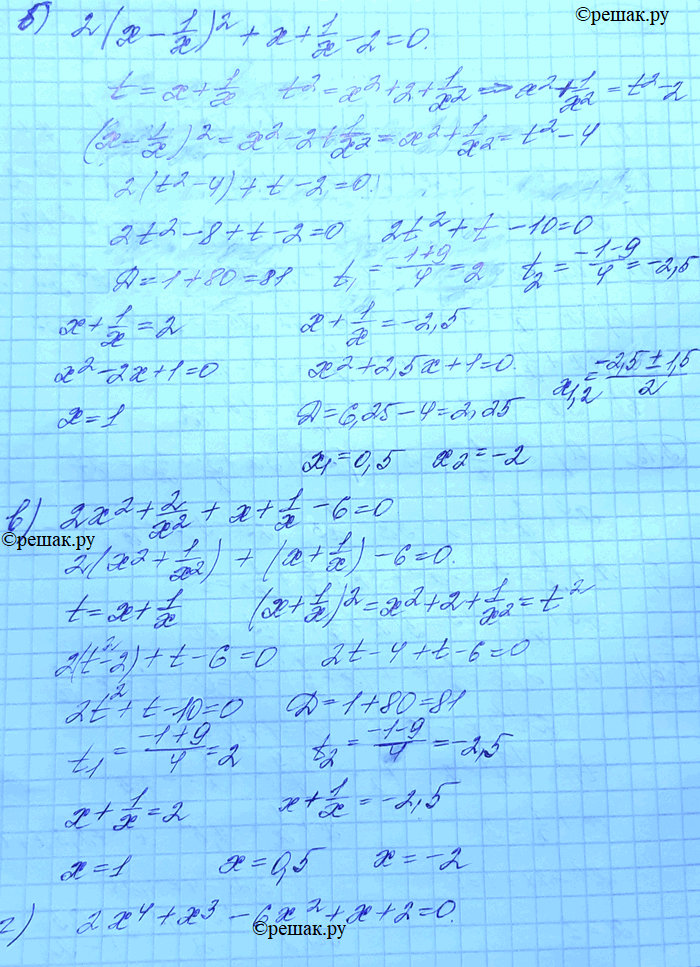 ©решак.ру
б) 2(x - 1/x)² + x + 1/x - 2 = 0.
t = x + 1/x    t² = x² + 2 + 1/x² => x² + 1/x² = t² - 2
(x - 1/x)² = x² - 2 + 1/x² = x² + 1/x² = t² - 4
2(t² - 4) + t - 2 = 0.
2t² - 8 + t - 2 = 0    2t² + t - 10 = 0
D = 1 + 80 = 81    t₁ = (-1+9)/4 = 2    t₂ = (-1-9)/4 = -2,5
x + 1/x = 2    x + 1/x = -2,5
x² - 2x + 1 = 0    x² + 2,5x + 1 = 0.    x₁,₂ = (-2,5 ± 1,5)/2
x = 1    D = 6,25 - 4 = 2,25
x₁ = 0,5    x₂ = -2
в) 2x² + 2/x² + x + 1/x - 6 = 0
©решак.ру
2(x² + 1/x²) + (x + 1/x) - 6 = 0.
t = x + 1/x    (x + 1/x)² = x² + 2 + 1/x² = t²
2(t² - 2) + t - 6 = 0    2t - 4 + t - 6 = 0
2t² + t - 10 = 0    D = 1 + 80 = 81
t₁ = (-1+9)/4 = 2    t₂ = (-1-9)/4 = -2,5
x + 1/x = 2    x + 1/x = -2,5
x = 1    x = 0,5    x = -2
г) 2x⁴ + x³ - 6x² + x + 2 = 0.
©решак.ру